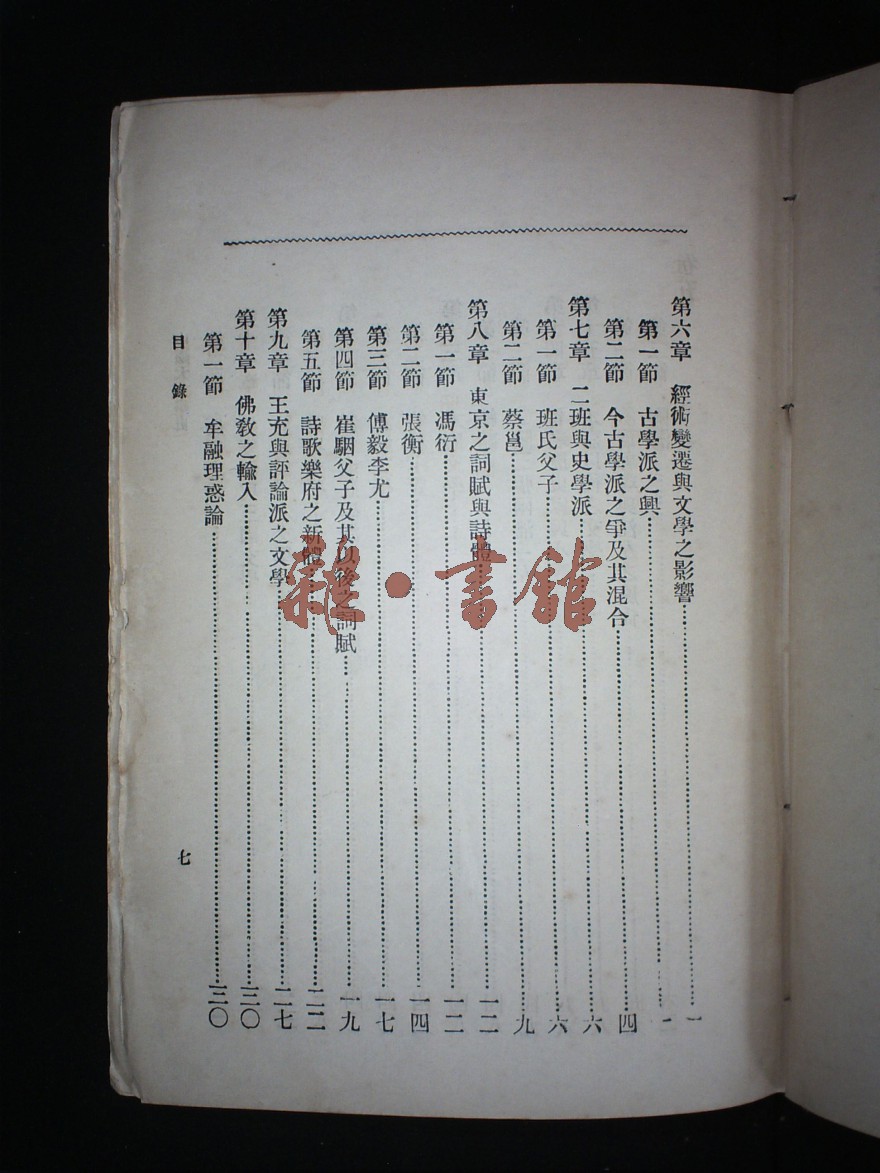 第六章　經術變遷與文學之影響……一
第一節　古學派之興……一
第二節　今古學派之爭及其混合……四
第七章　二班與史學派……六
第一節　班氏父子……六
第二節　蔡邕……九
第八章　東京之詞賦與詩體……一二
第一節　馮衍……一二
第二節　張衡……一四
第三節　傅毅李尤……一七
第四節　崔駰父子及其以後之詞賦……一九
第五節　詩歌樂府之新體……二二
第九章　王充與評論派之文學……二七
第十章　佛敎之輸入……三〇
第一節　牟融理惑論……三〇
目錄
七
雜·書館